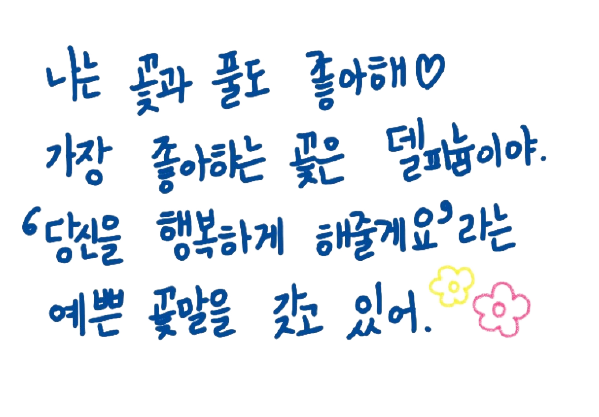 나는 꽃과 풀도 좋아해♡
가장 좋아하는 꽃은 델피늄이야.
‘당신을 행복하게 해줄게요’라는
예쁜 꽃말을 갖고 있어.